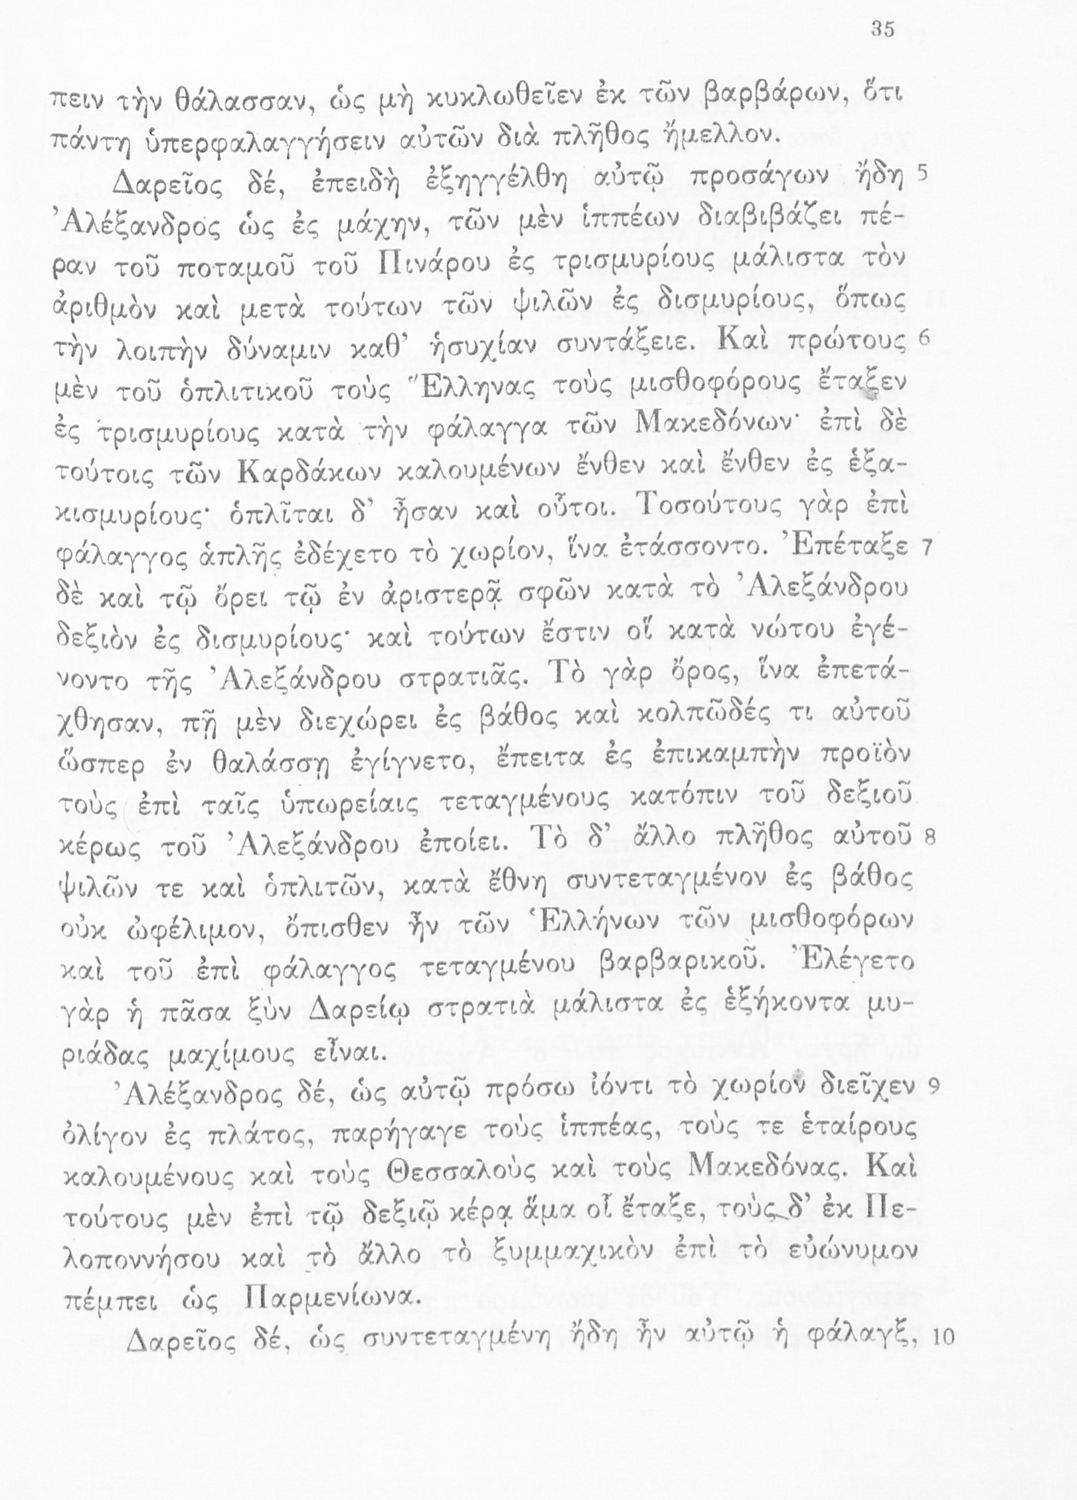 35
πειν τὴν θάλασσαν, ὡς μὴ κυκλωθεῖεν ἐκ τῶν βαρβάρων, ὅτι
πάντη ὑπερφαλαγγήσειν αὐτῶν διὰ πλῆθος ἤμελλον.
Δαρεῖος δέ, ἐπειδὴ ἐξηγγέλθη αὐτῷ προσάγων ἤδη 5
Ἀλέξανδρος ὡς ἐς μάχην, τῶν μὲν ἱππέων διαβιβάζει πέ-
ραν τοῦ ποταμοῦ τοῦ Πινάρου ἐς τρισμυρίους μάλιστα τὸν
ἀριθμὸν καὶ μετὰ τούτων τῶν ψιλῶν ἐς δισμυρίους, ὅπως
τὴν λοιπὴν δύναμιν καθ’ ἡσυχίαν συντάξειε. Καὶ πρώτους 6
μὲν τοῦ ὁπλιτικοῦ τοὺς Ἕλληνας τοὺς μισθοφόρους ἔταξεν
ἐς τρισμυρίους κατὰ τὴν φάλαγγα τῶν Μακεδόνων· ἐπὶ δὲ
τούτοις τῶν Καρδάκων καλουμένων ἔνθεν καὶ ἔνθεν ἐς ἑξα-
κισμυρίους· ὁπλῖται δ’ ἦσαν καὶ οὗτοι. Τοσούτους γὰρ ἐπὶ
φάλαγγος ἁπλῆς ἐδέχετο τὸ χωρίον, ἵνα ἐτάσσοντο. Ἐπέταξε 7
δὲ καὶ τῷ ὄρει τῷ ἐν ἀριστερᾷ σφῶν κατὰ τὸ Ἀλεξάνδρου
δεξιὸν ἐς δισμυρίους· καὶ τούτων ἔστιν οἳ κατὰ νώτου ἐγέ-
νοντο τῆς Ἀλεξάνδρου στρατιᾶς. Τὸ γὰρ ὄρος, ἵνα ἐπετά-
χθησαν, πῇ μὲν διεχώρει ἐς βάθος καὶ κολπῶδές τι αὐτοῦ
ὥσπερ ἐν θαλάσσῃ ἐγίγνετο, ἔπειτα ἐς ἐπικαμπὴν προϊὸν
τοὺς ἐπὶ ταῖς ὑπωρείαις τεταγμένους κατόπιν τοῦ δεξιοῦ
κέρως τοῦ Ἀλεξάνδρου ἐποίει. Τὸ δ’ ἄλλο πλῆθος αὐτοῦ 8
ψιλῶν τε καὶ ὁπλιτῶν, κατὰ ἔθνη συντεταγμένον ἐς βάθος
οὐκ ὠφέλιμον, ὄπισθεν ἦν τῶν Ἑλλήνων τῶν μισθοφόρων
καὶ τοῦ ἐπὶ φάλαγγος τεταγμένου βαρβαρικοῦ. Ἐλέγετο
γὰρ ἡ πᾶσα ξὺν Δαρείῳ στρατιὰ μάλιστα ἐς ἑξήκοντα μυ-
ριάδας μαχίμους εἶναι.
Ἀλέξανδρος δέ, ὡς αὐτῷ πρόσω ἰόντι τὸ χωρίον διεῖχεν 9
ὀλίγον ἐς πλάτος, παρήγαγε τοὺς ἱππέας, τούς τε ἑταίρους
καλουμένους καὶ τοὺς Θεσσαλοὺς καὶ τοὺς Μακεδόνας. Καὶ
τούτους μὲν ἐπὶ τῷ δεξιῷ κέρᾳ ἅμα οἷ ἔταξε, τοὺς δ’ ἐκ Πε-
λοποννήσου καὶ τὸ ἄλλο τὸ ξυμμαχικὸν ἐπὶ τὸ εὐώνυμον
πέμπει ὡς Παρμενίωνα.
Δαρεῖος δέ, ὡς συντεταγμένη ἤδη ἦν αὐτῷ ἡ φάλαγξ, 10